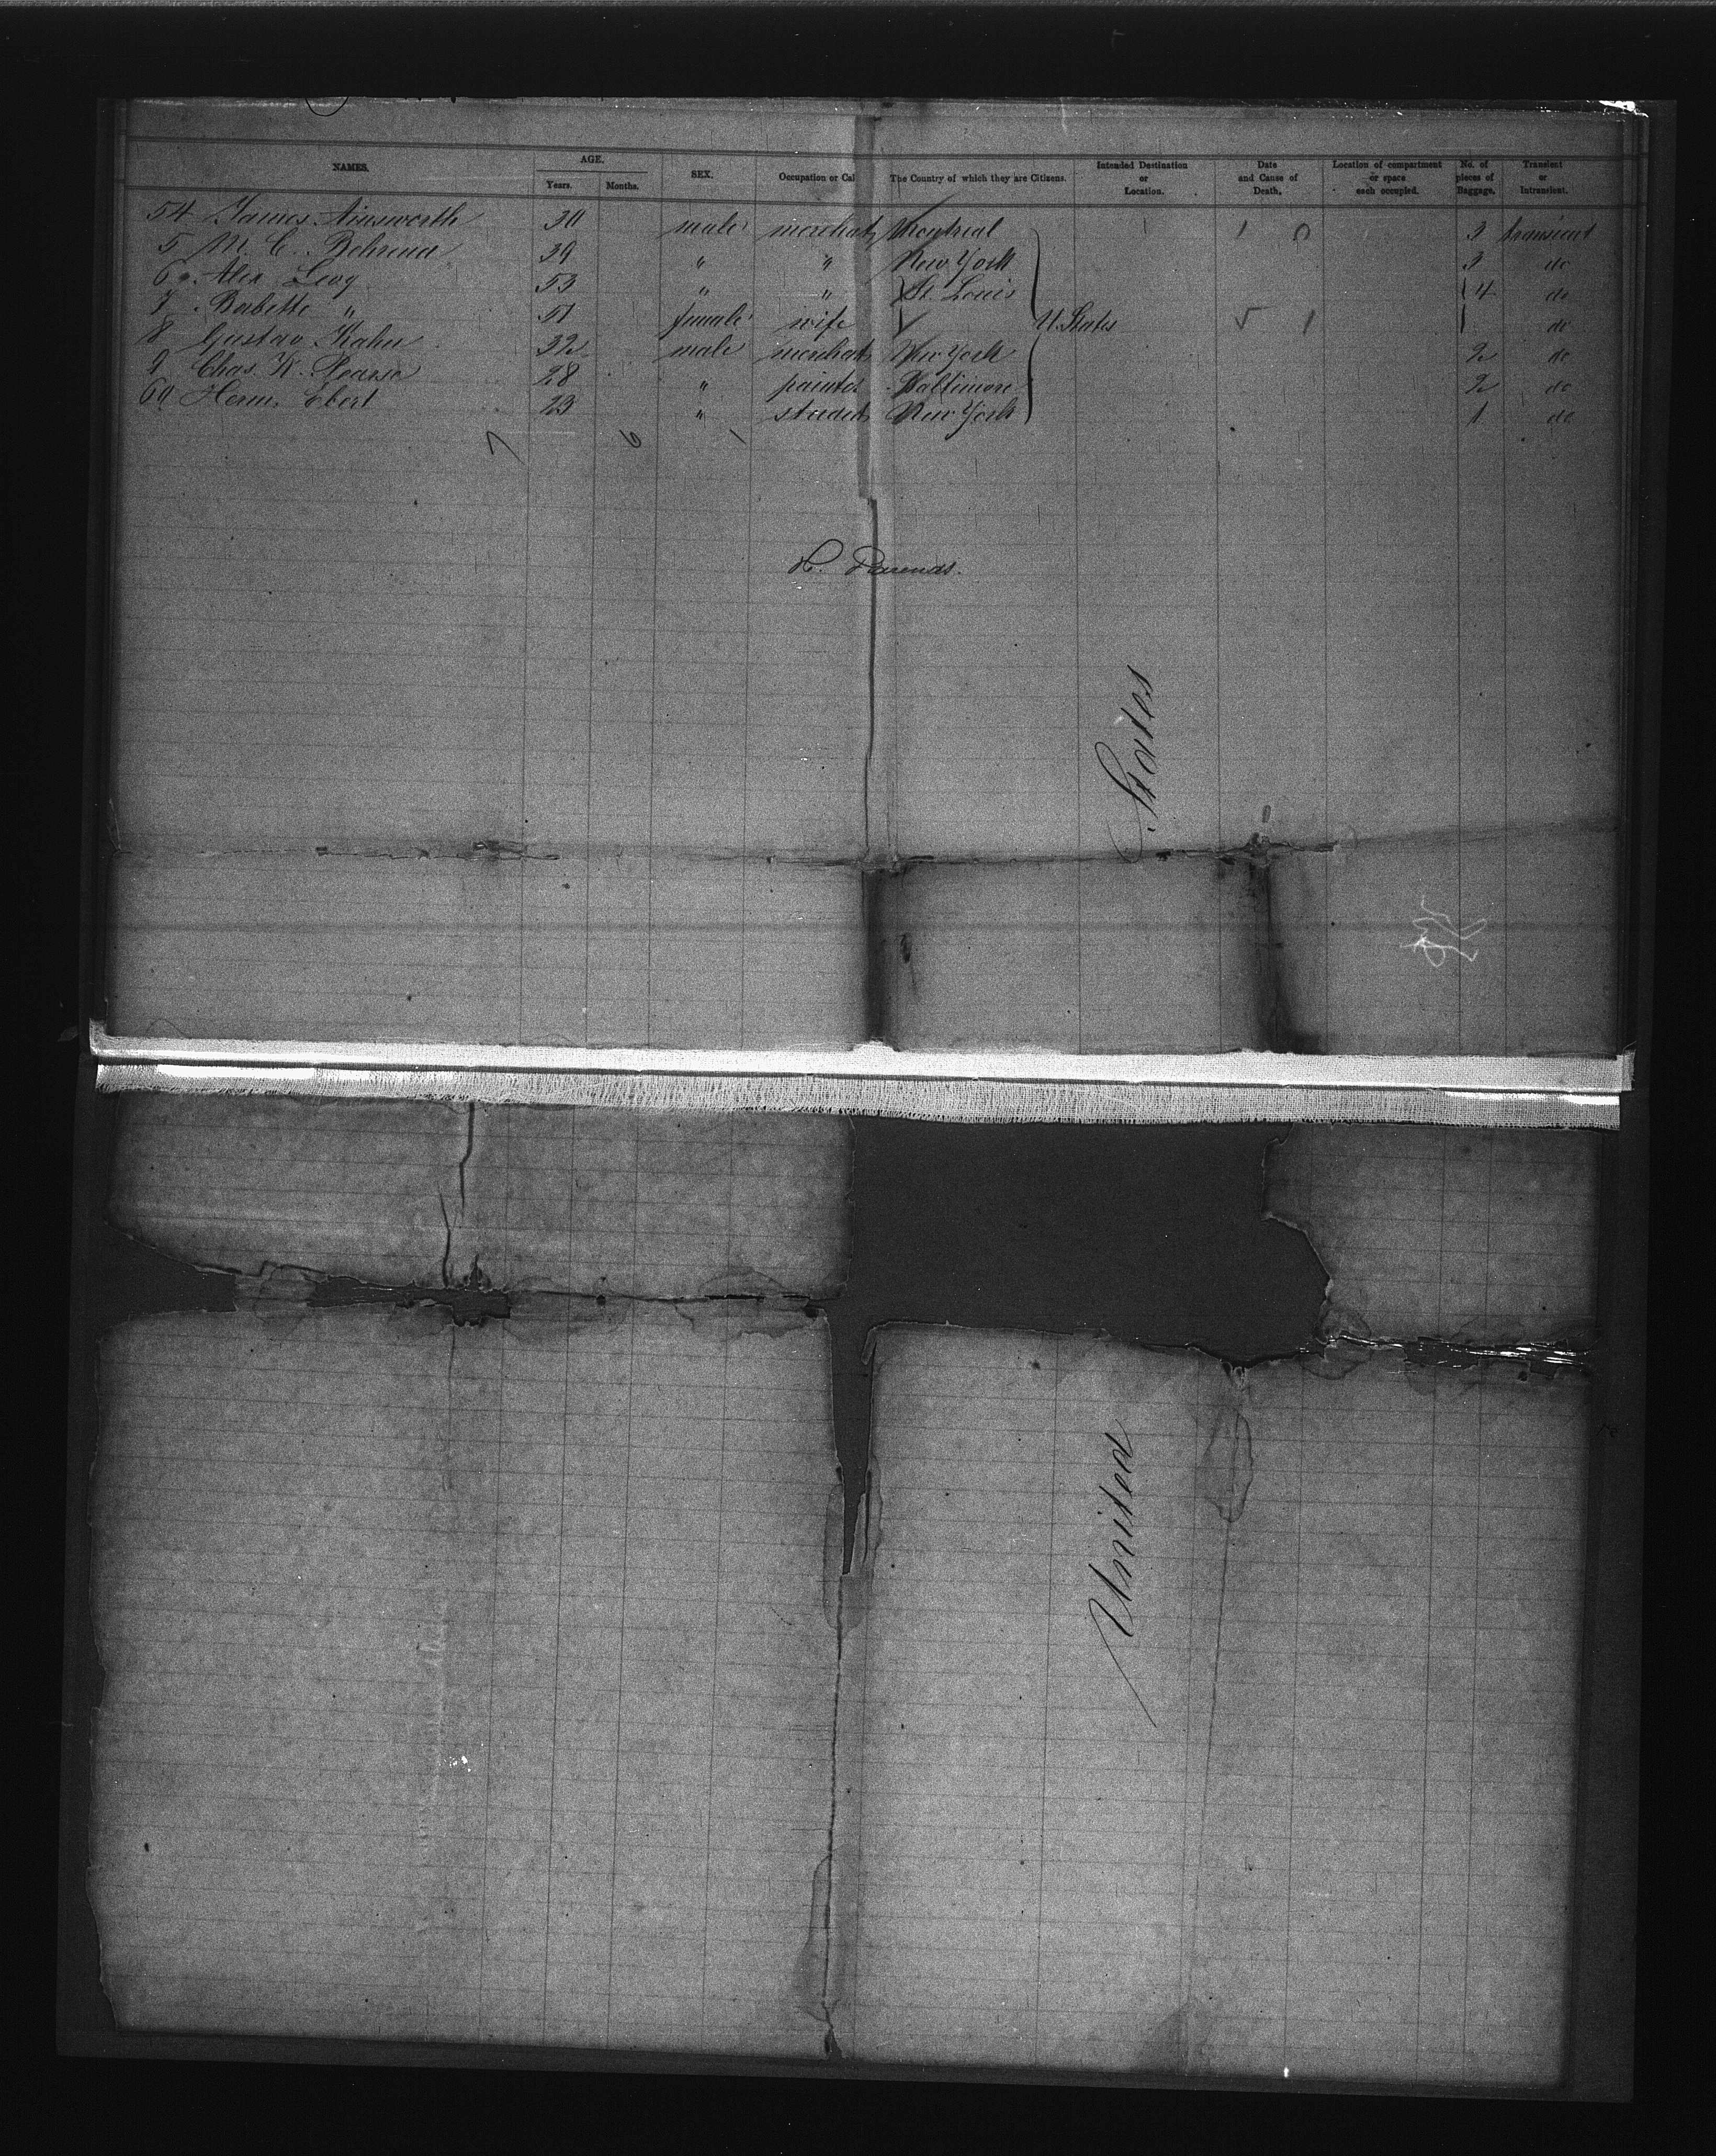 NAMES. AGE. Years. Months. SEX. Occupation or Cal The Country of which they are Citizens. Intended Destination or Location. Date and Cause of Death. Location of compartment or space each occupied. No. of pieces of Baggage. Transient or Intransient.
54 James Ainsworth 30 male merchant Montreal 1 0 3 transient
5 M. C. Behrend 39 " " New York 3 do
6 Alex Levy 53 " " St. Louis 4 do
7 Babette " 51 female wife U. States 5 1 do
8 Gustav Kahn 32 male merchant New York 2 do
9 Chas. K. 28 " painter Baltimore 2 do
60 Herm. Ebert 23 " student New York 1 do
7 6 1
H. Barends.
United States